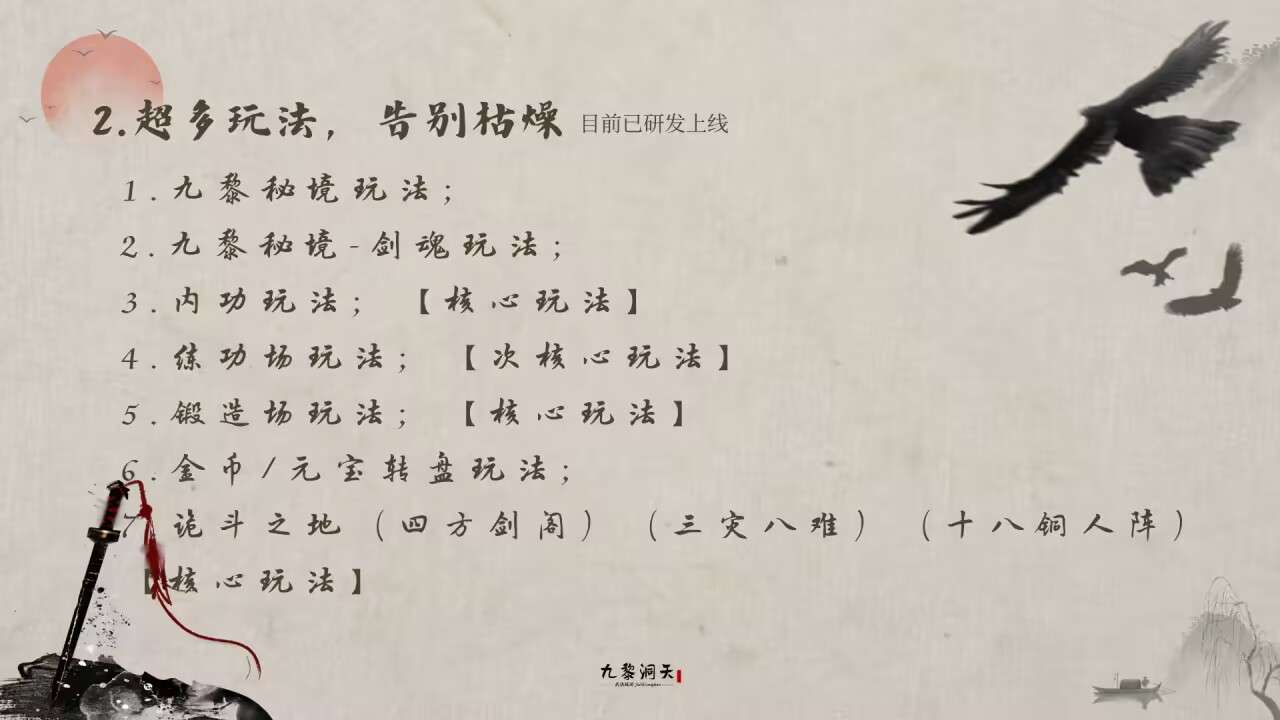 2.超多玩法，告别枯燥 目前已研发上线
1.九黎秘境玩法；
2.九黎秘境-剑魂玩法；
3.内功玩法； 【核心玩法】
4.练功场玩法； 【次核心玩法】
5.锻造场玩法； 【核心玩法】
6.金币/元宝转盘玩法；
7.诡斗之地（四方剑阁）（三灾八难）（十八铜人阵）
【核心玩法】
九黎洞天